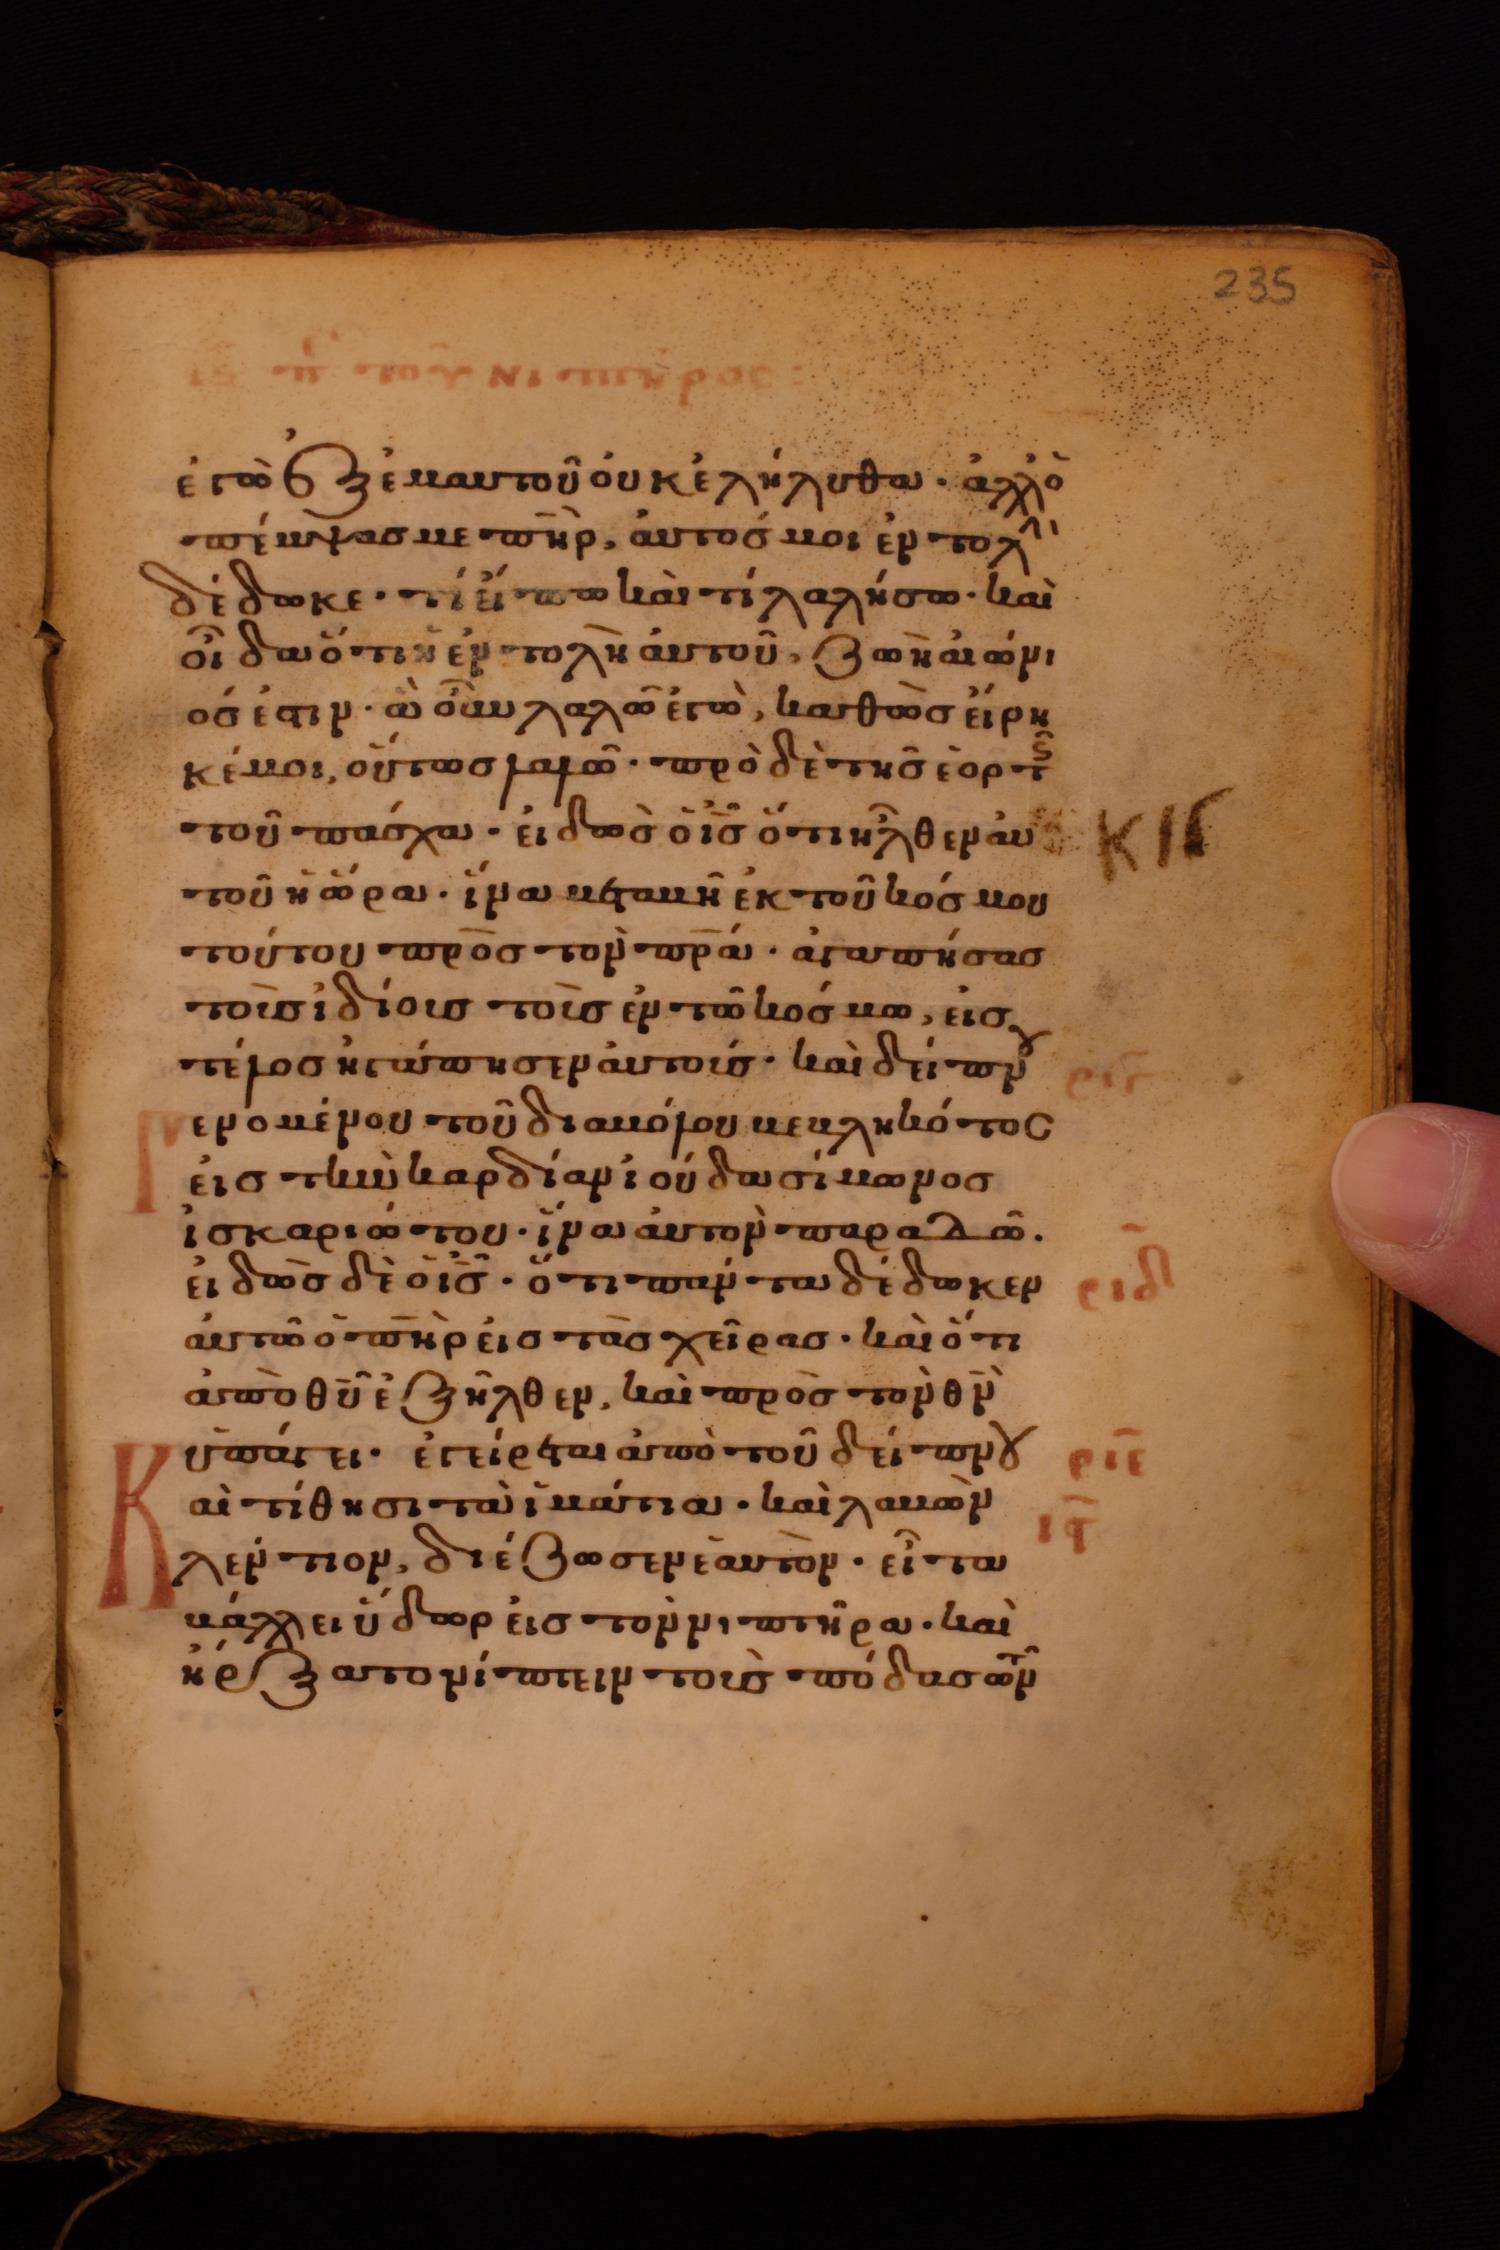 235
ιη π τοῦ νιπτῆρος:
ἐγὼ ἐξ ἐμαυτοῦ οὐκ ἐλήλυθα· ἀλλ' ὁ
πέμψας με π̅η̅ρ̅, αὐτός μοι ἐντολὴν
δέδωκε· τί εἴπω καὶ τί λαλήσω· καὶ
οἶδα ὅτι ἡ ἐντολὴ αὐτοῦ, ζωὴ αἰώνι
ός ἐστιν· ἃ οὖν λαλῶ ἐγὼ, καθὼς εἴρη
κέ μοι, οὕτως λαλῶ· πρὸ δὲ τῆς ἑορτῆς
τοῦ πάσχα· εἰδὼς ὁ ι̅ς̅ ὅτι ἦλθεν αὐ
ΚΙϚ
τοῦ ἡ ὥρα· ἵνα μεταβῆ ἐκ τοῦ κόσμου
τούτου πρὸς τὸν π̅ρ̅α̅· ἀγαπήσας
τοὺς ἰδίους τοὺς ἐν τῶ κόσμω, εἰς
τέλος ἠγάπησεν αὐτούς· καὶ δείπνου
ρ̅ι̅γ̅
Γενομένου τοῦ διαβόλου βεβληκότος
εἰς τὴν καρδίαν ἰούδα σίμωνος
ἰσκαριώτου· ἵνα αὐτὸν παραδῶ.
εἰδὼς δὲ ὁ ι̅ς̅· ὅτι πάντα δέδωκεν
ρ̅ι̅δ̅
αὐτῶ ὁ π̅η̅ρ̅ εἰς τὰς χεῖρας· καὶ ὅτι
ἀπὸ θ̅υ̅ ἐξῆλθεν, καὶ πρὸς τὸν θ̅ν̅
ὑπάγει· ἐγείρεται ἀπὸ τοῦ δείπνου
ρ̅ι̅ε̅
Καὶ τίθησι τὰ ἱμάτια· καὶ λαβὼν
λέντιον, διέζωσεν ἑαυτὸν· εἶτα
βάλλει ὕδωρ εἰς τὸν νιπτῆρα· καὶ
ἤρξατο νίπτειν τοὺς πόδας τῶν